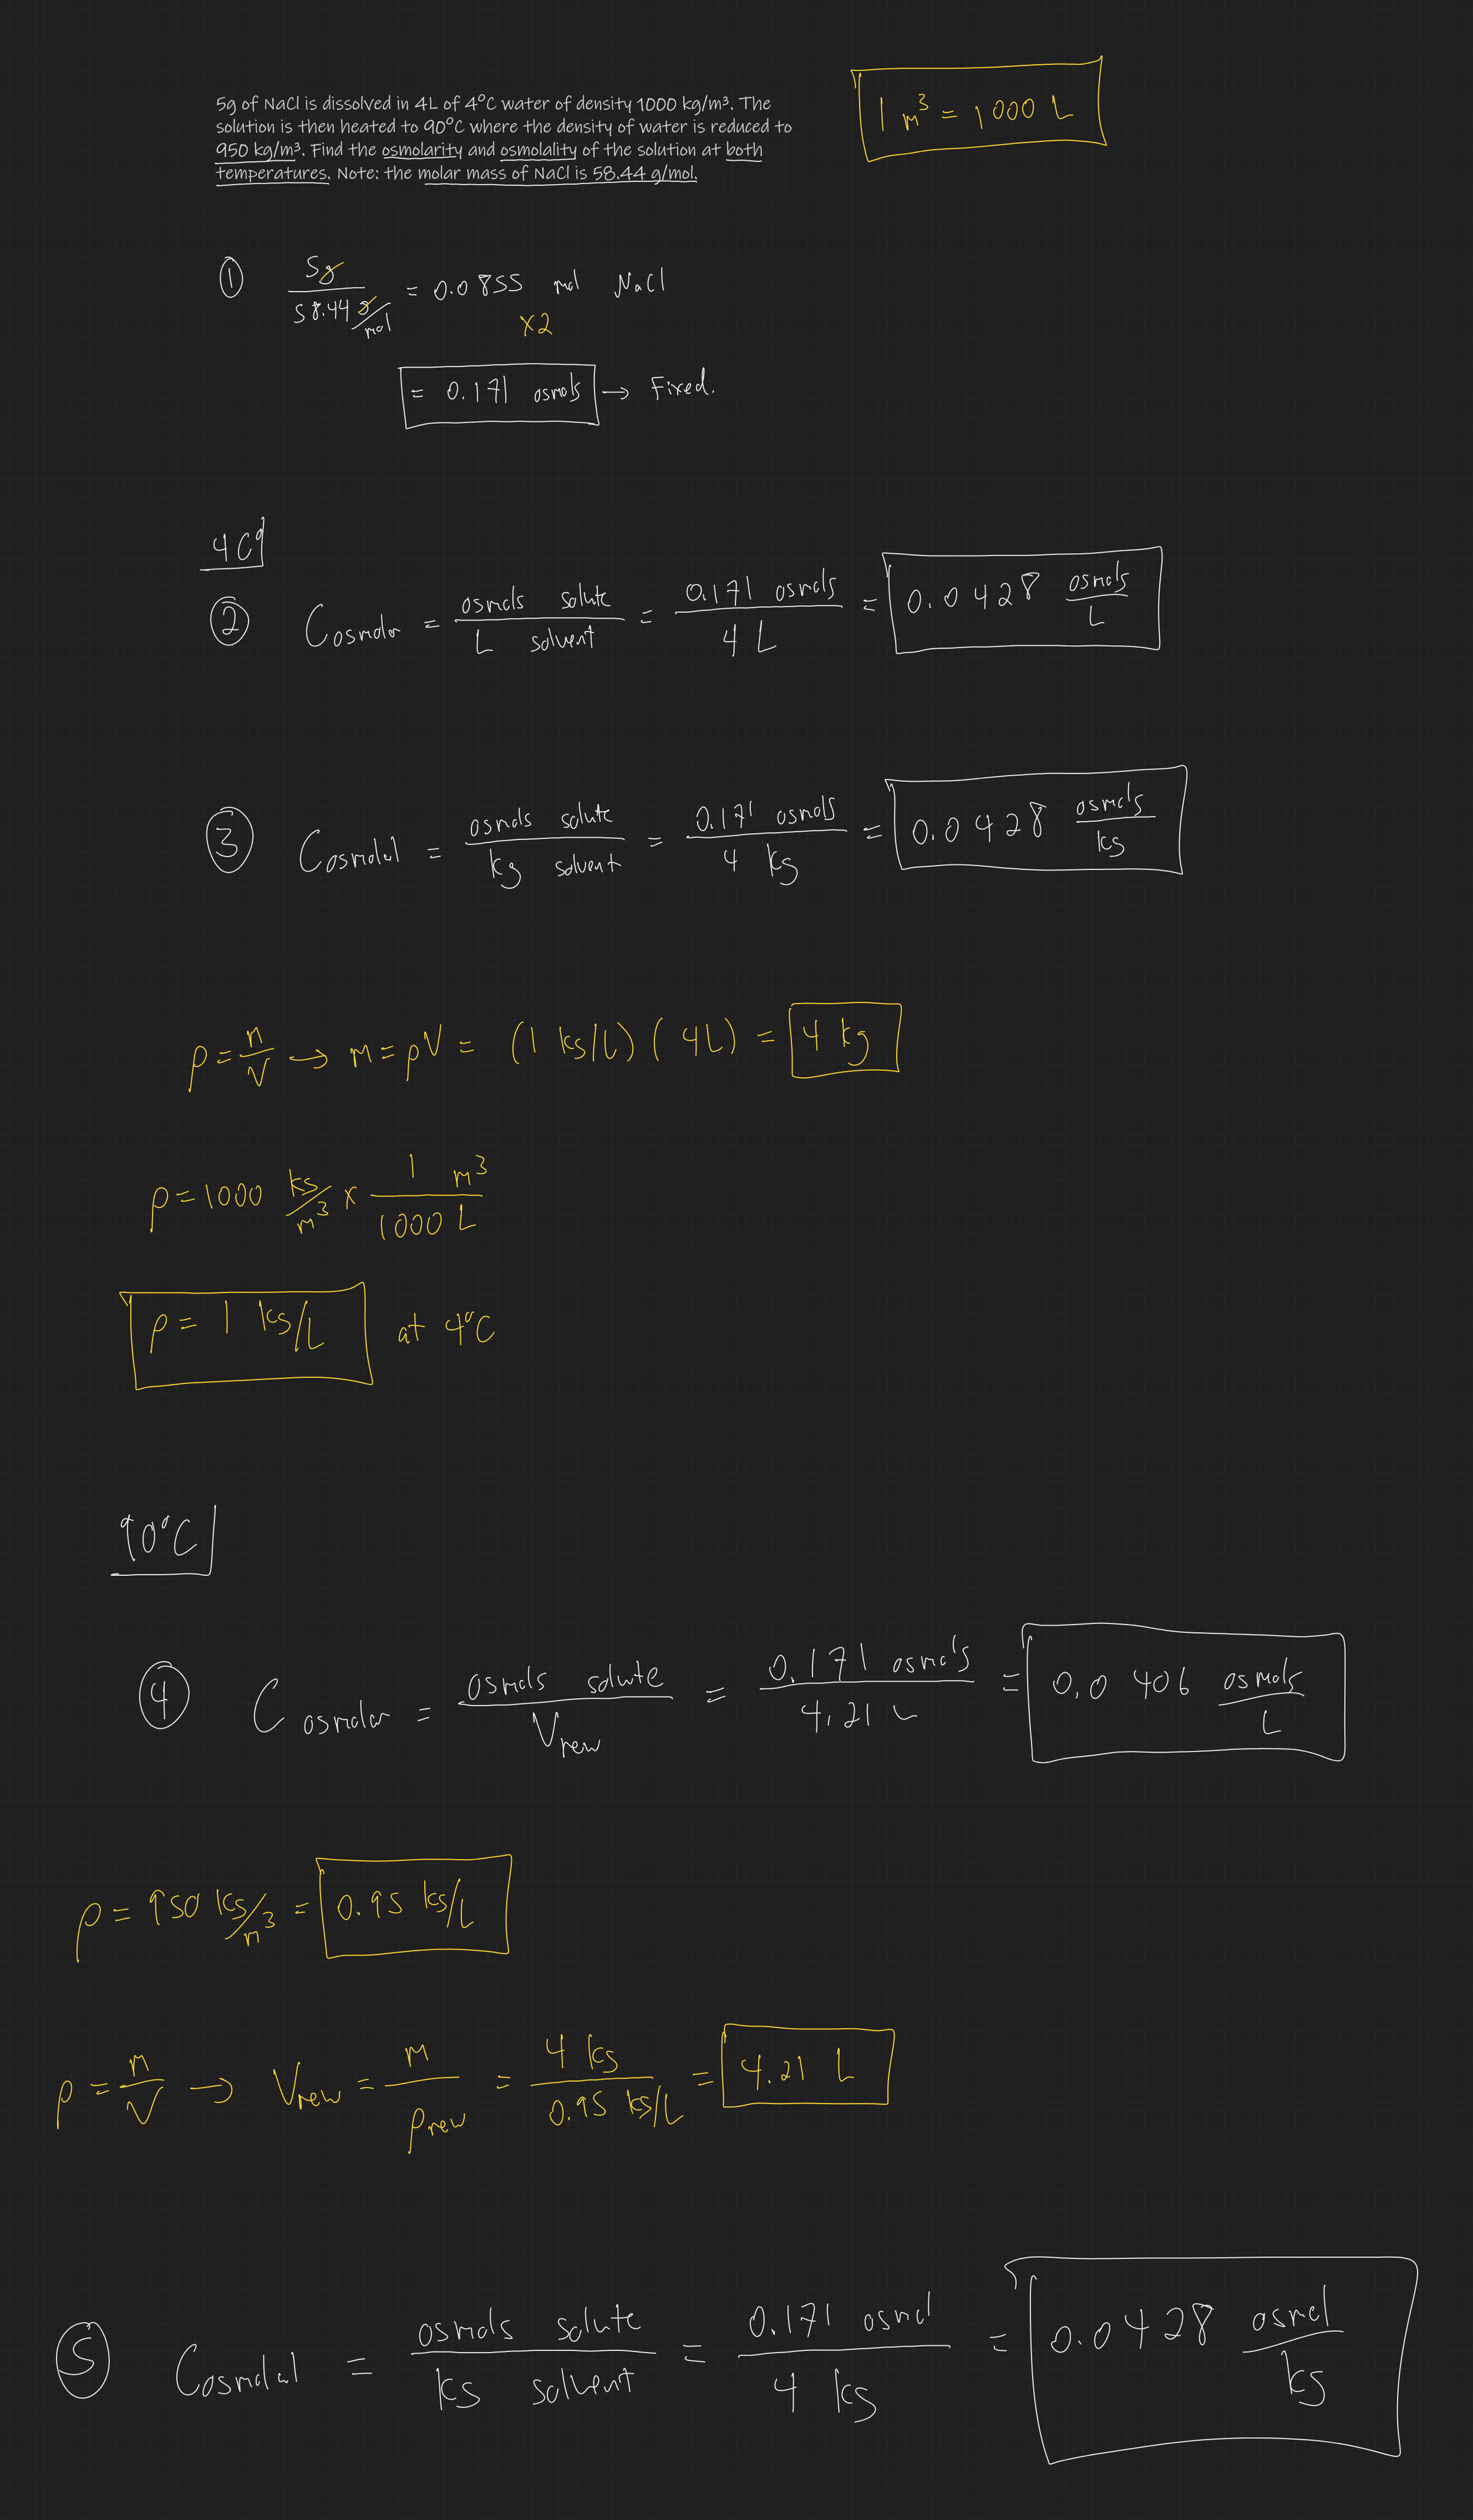 5g of NaCl is dissolved in 4L of 4°C water of density 1000 kg/m³. The
solution is then heated to 90°C where the density of water is reduced to
950 kg/m³. Find the osmolarity and osmolality of the solution at both
temperatures. Note: the molar mass of NaCl is 58.44 g/mol.
1 m³ = 1000 L
① 5g / 58.44 g/mol = 0.0855 mol NaCl
×2
= 0.171 osmols → Fixed.
4C°
② C osmolar = osmols solute / L solvent = 0.171 osmols / 4 L = 0.0428 osmols / L
③ C osmolal = osmols solute / kg solvent = 0.171 osmols / 4 kg = 0.0428 osmols / kg
ρ = m/V → m = ρV = (1 kg/L) (4L) = 4 kg
ρ = 1000 kg/m³ × 1 m³ / 1000 L
ρ = 1 kg/L at 4°C
90°C
④ C osmolar = osmols solute / Vnew = 0.171 osmols / 4.21 L = 0.0406 osmols / L
ρ = 950 kg/m³ = 0.95 kg/L
ρ = m/V → Vnew = m / ρnew = 4 kg / 0.95 kg/L = 4.21 L
⑤ C osmolal = osmols solute / kg solvent = 0.171 osmol / 4 kg = 0.0428 osmol / kg